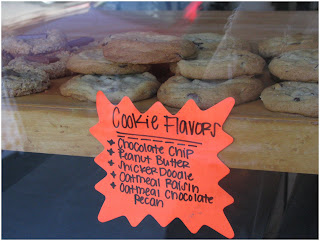 Cookie Flavors
+ Chocolate Chip
+ Peanut Butter
+ SnickerDoodle
+ Oatmeal Raisin
+ Oatmeal Chocolate
Pecan